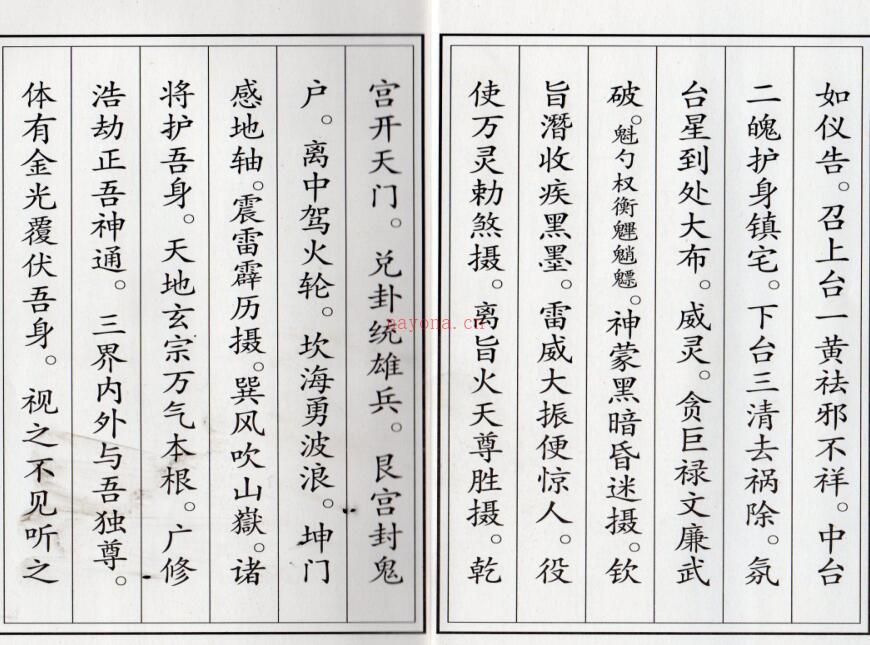 如仪告。召上台一黄祛邪不祥。中台
二魄护身镇宅。下台三清去祸除。氛
台星到处大布。威灵。贪巨禄文廉武
破。魁勺权衡魓魈魒。神蒙黑暗昏迷摄。钦
旨潜收疾黑墨。雷威大振便惊人。役
使万灵勅煞摄。离旨火天尊胜摄。乾
宫开天门。兑卦统雄兵。艮宫封鬼
户。离中驾火轮。坎海勇波浪。坤门
感地轴。震雷霹历摄。巽风吹山嶽。诸
将护吾身。天地玄宗万气本根。广修
浩劫正吾神通。三界内外与吾独尊。
体有金光覆伏吾身。视之不见听之
nayona.cn